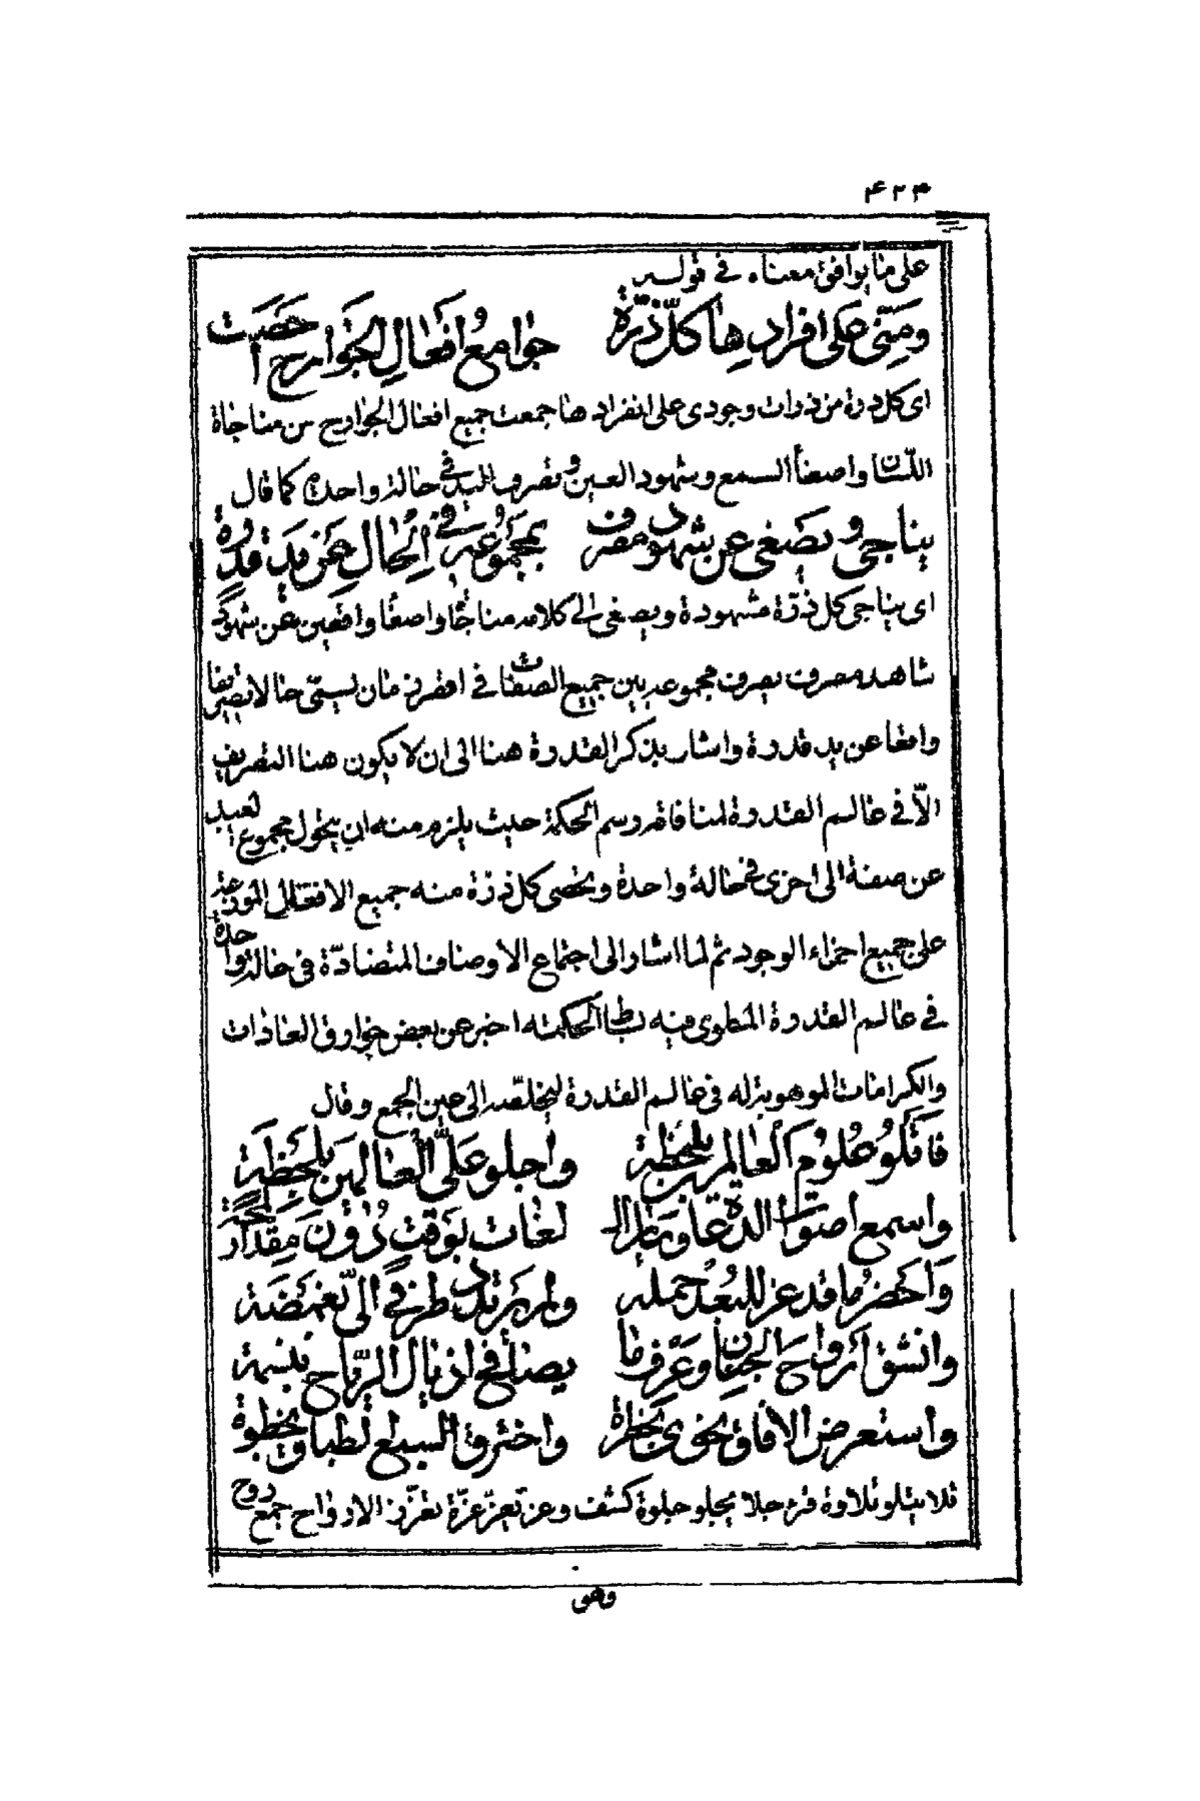 ۴۲۳
على ما يوافق معناه في قوله
ومنى على افرادها كل ذرة جوامع افعال الجوارح احصت
اى كل ذرة من ذرات وجودى على انفرادها جمعت جميع افعال الجوارح من مناجاة
اللسان واصغاء السمع وشهود العين وتصرف اليد في حالة واحدة كما قال
يناجى ويصغى عن شهود مصرف بمجموعه في الحال عن يد قدرة
اى يناجى كل ذرة مشهودة ويصغى الى كلامه مناجاة واصغاء واقعين عن شهود
شاهد مصرف بصرف مجموعه بين جميع الصفات في اقصر زمان يسمى حالا تصريفا
واقعا عن يد قدرة واشار بذكر القدرة هنا الى ان لا يكون هذا التصريف
الا في عالم القدرة لمنافاته رسم الحكمة حيث يلزم منه ان يتحول مجموع العبد
عن صفة الى اخرى في حالة واحدة ويحصى كل ذرة منه جميع الافعال الموزعة
على جميع اجزاء الوجود ثم لما اشار الى اجتماع الاوصاف المتضادة في حالة واحدة
في عالم القدرة المطوى فيه بساط الحكمة اخبر عن بعض خوارق العادات
والكرامات الموهوبة له في عالم القدرة لتخلصه الى عين الجمع وقال
فاتلو علوم العالمين بلفظة واجلو على العالمين بلحظة
واسمع اصوات الدعاة وسائر اللغات بوقت دون مقدار لمحة
واحضر ما قد عز للبعد حمله ولم يرتدد طرفي الى بغمضة
وانشق ارواح الجنان وعرف ما يصافح اذيال الرياح بنسمة
واستعرض الافاق نحوى بخطرة واخترق السبع الطباق بخطوة
تلا يتلو تلاوة قرء جلا يجلو جلوة كشف وعز يعز عزة تعزز الارواح جمع روح
وهو